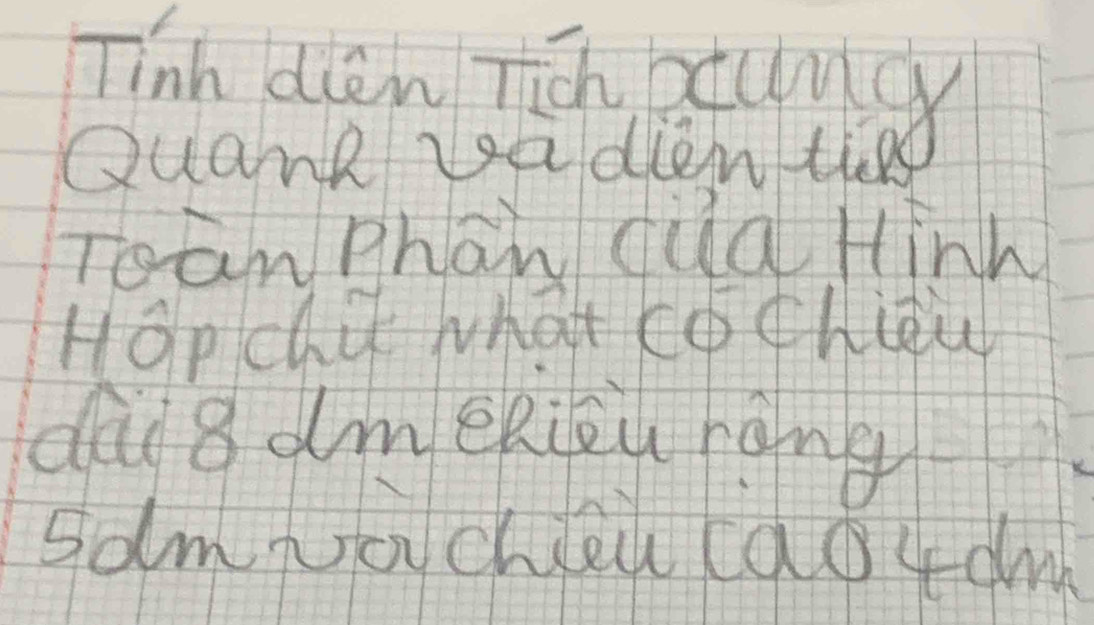 Tính diên Tích xung
Quanh và diện tích
Toàn Phần của Hình
Hôp chữ nhật có chiều
dài 8 dm chiều rộng
5dm và chiều cao 4dm